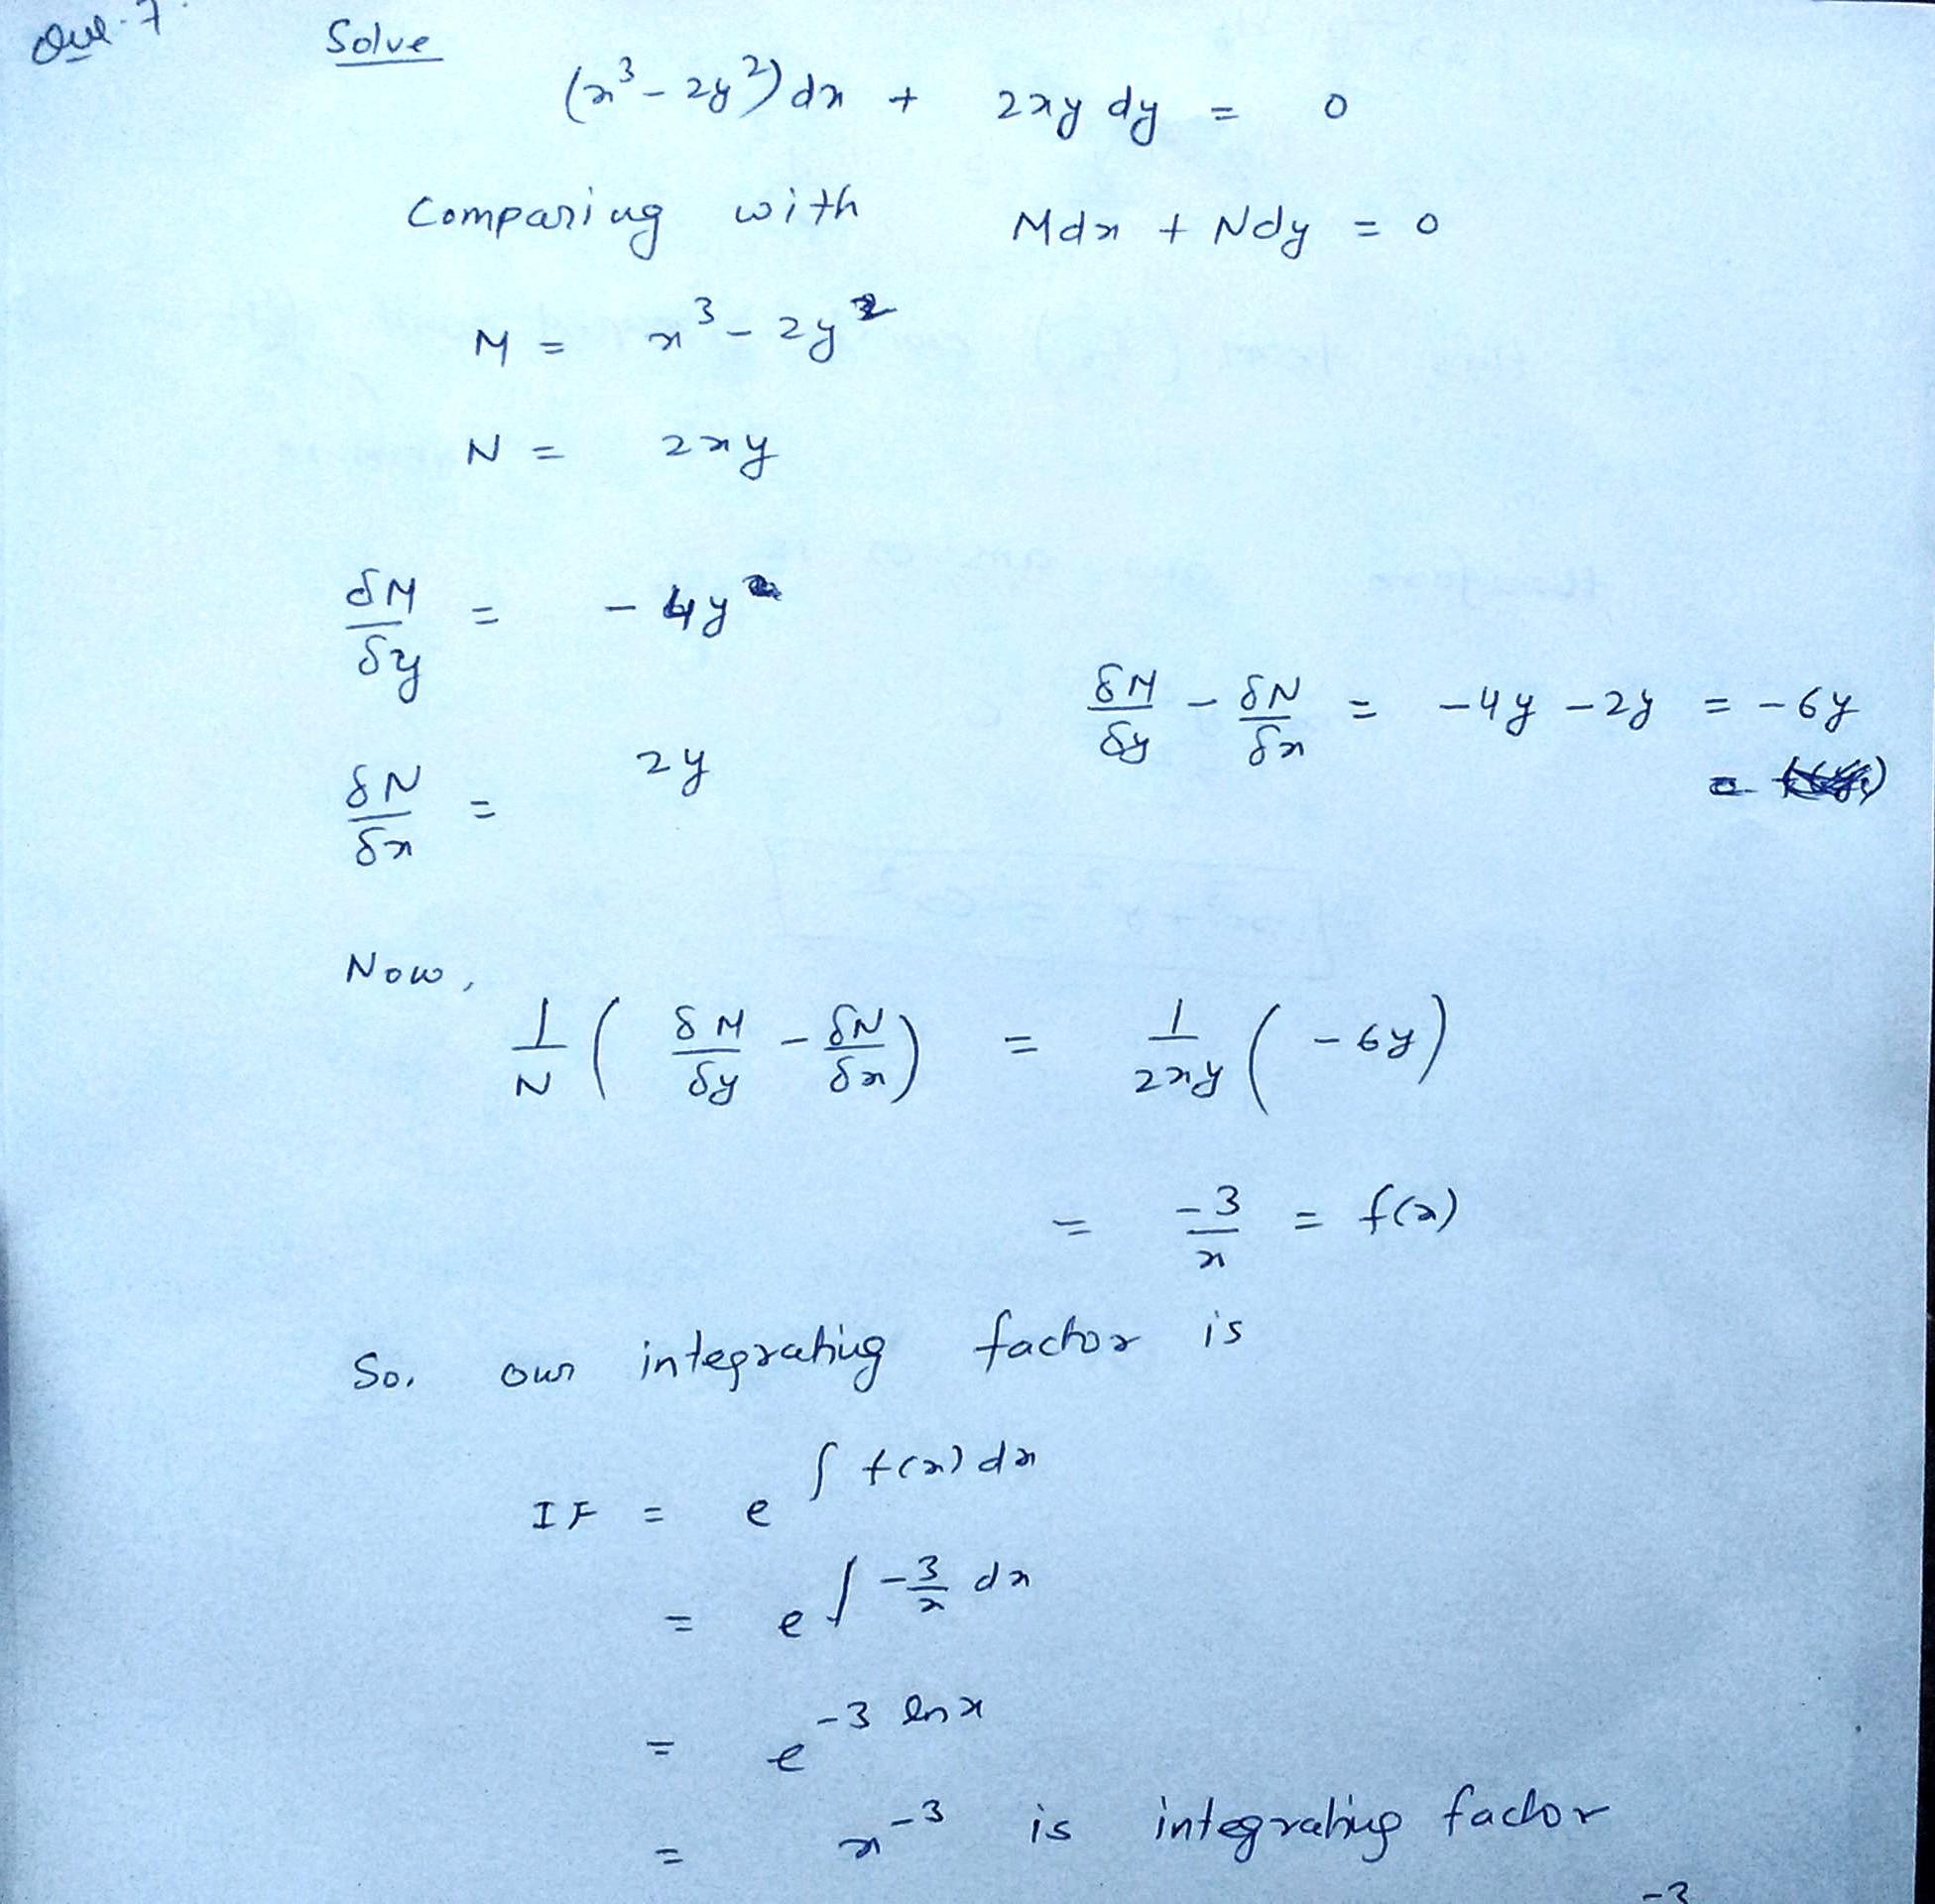 Que.7
Solve
(x³ - 2y²) dx + 2xy dy = 0
Comparing with Mdx + Ndy = 0
M = x³ - 2y²
N = 2xy
δM/δy = - 4y
δM/δy - δN/δx = -4y - 2y = -6y
δN/δx = 2y
Now,
1/N ( δM/δy - δN/δx ) = 1/2xy ( -6y )
= -3/x = f(x)
So. our integrating factor is
IF = e^∫ f(x) dx
= e^∫ -3/x dx
= e^-3 ln x
= x⁻³ is integrating factor
-3